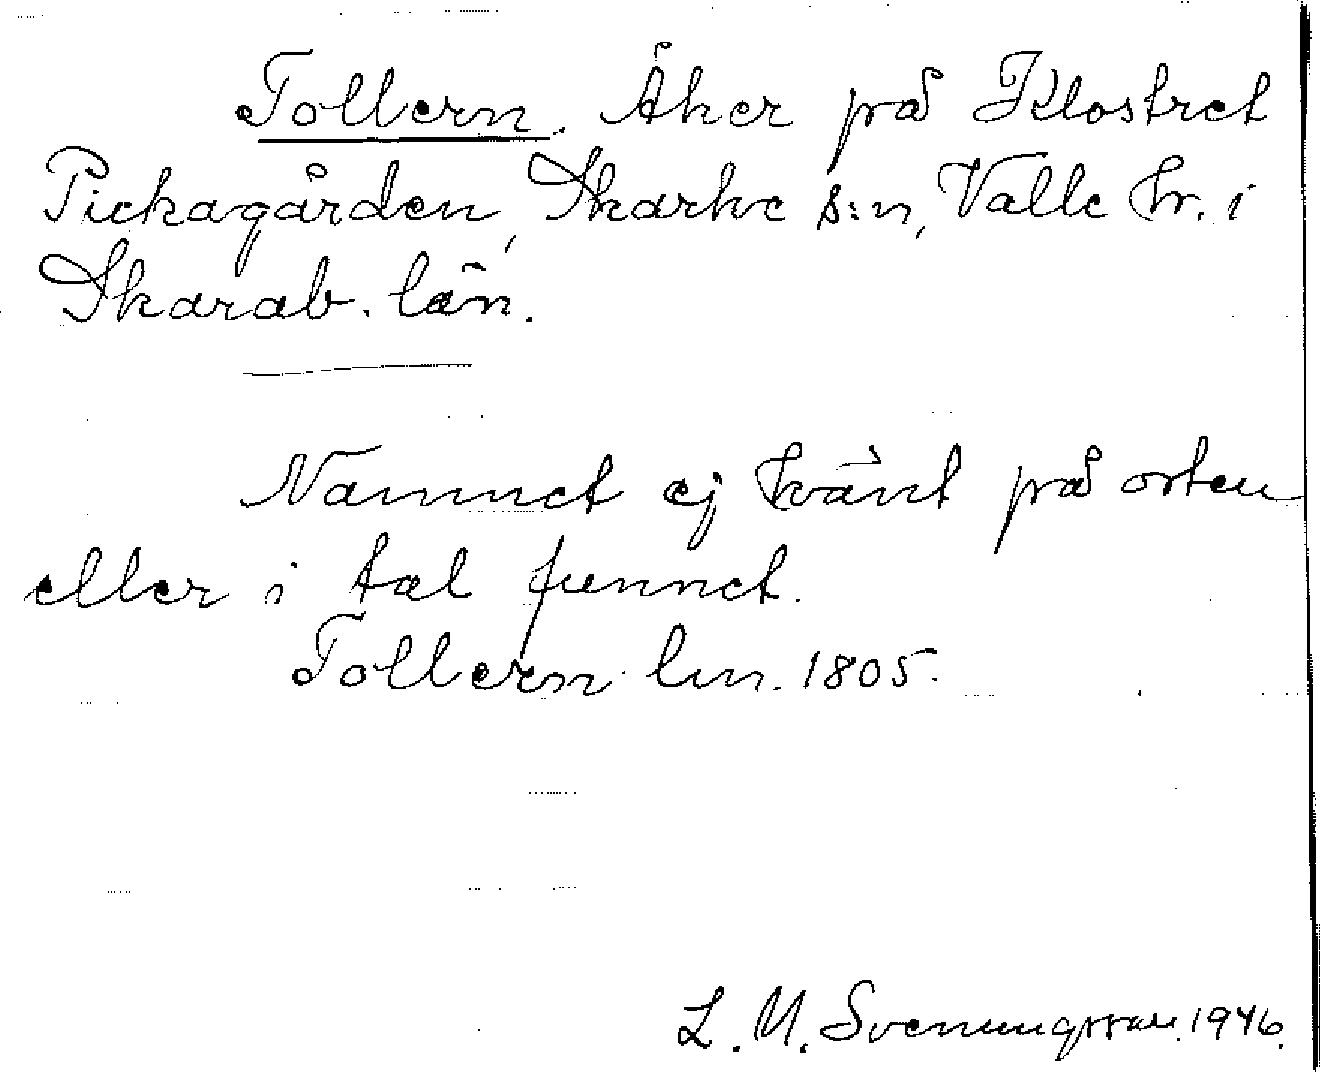 Tollern. Åker på Klostret
Pickagården, Skarke s:n, Valle hr. i
Skarab. län.
Namnet ej känt på orten
eller i tal funnet.
Tollern lm. 1805.
L. M. Svenungsson. 1946.